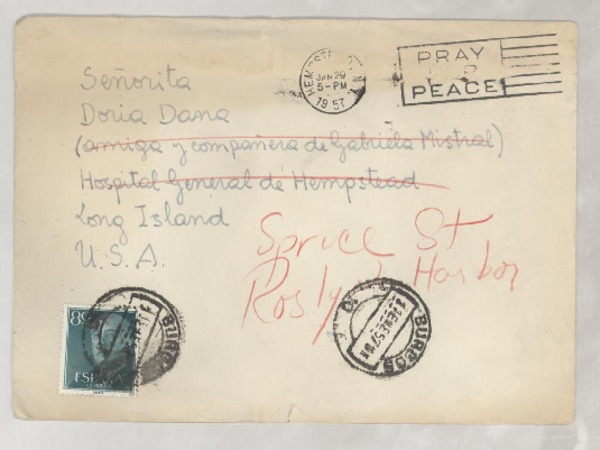 HEMPSTEAD
JAN 29
5-PM
1957
PRAY
FOR
PEACE
Señorita
Doria Dana
(amiga y compañera de Gabriela Mistral)
Hospital General de Hempstead
Long Island
U. S. A.
Spruce St
Roslyn Harbor
BURGOS
ESPAÑA